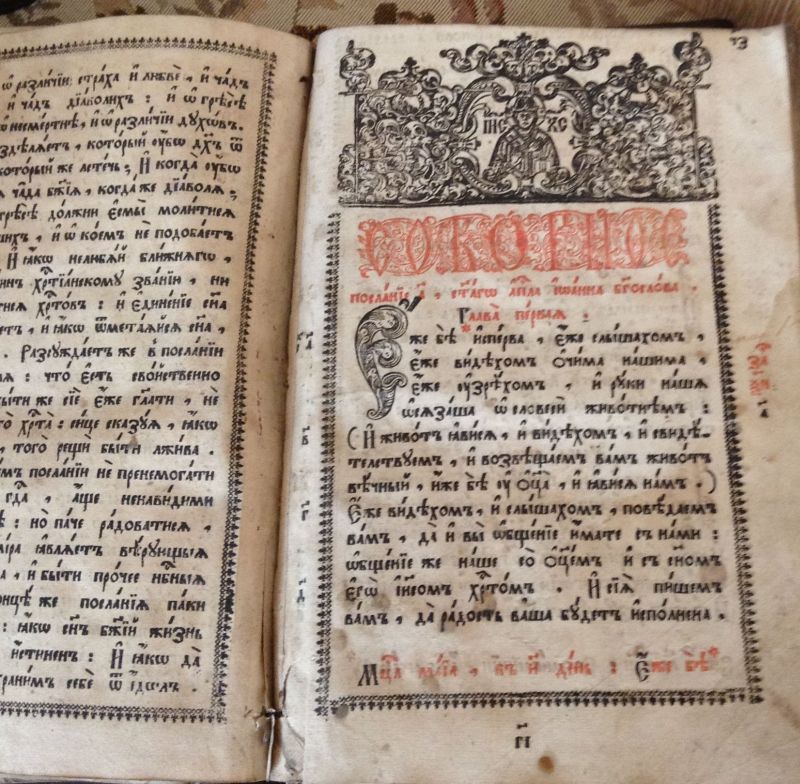 ѿ разли́чїи стра́ха и҆ любвѐ , и҆ ча̑дъ
и҆ ча̑дъ дїа́волихъ : и҆ ѡ҆ грѣсѣ̀
и҆ ѡ҆ разли́чїи дꙋхѡ́въ .
кото́рый ᲂу҆́бѡ дх҃ъ ѿ
кото́рый же ле́стечь ; и҆ когда̀ ᲂу҆́бѡ
ча̑да бж҃їѧ , когда́ же дїа́волѧ ;
до́лжни є҆смы̀ моли́тисѧ
и҆ ѡ҆ ко́емъ не подоба́етъ
И҆ ꙗ҆́кѡ нелюбѧ́й бли́жнѧго ,
хрⷭ҇тїа́нскомꙋ зва́нїи , ни
хрⷭ҇то́въ : и҆ є҆дине́нїе сн҃а
и҆ ꙗ҆́кѡ ѿмета́ѧйсѧ сн҃а ,
. Разсꙋжда́етъ же в посла́нїи
что̀ є҆́сть сво́йственно
бы́ти же сїѐ є҆́же гл҃ати , не
хрⷭ҇та̀ : си́це сказꙋ́ѧ , ꙗ҆́кѡ
, того̀ рещѝ бы́ти лжи́ва .
посла́нїи не пренемога́ти
гдⷭ҇а , а҆́ще ненави́дими
: но па́че ра́доватисѧ ,
ꙗ҆влѧ́етъ вѣ́рꙋющыѧ
, и҆ бы́ти про́чее нбⷭ҇ныѧ
же посла́нїѧ па́ки
: ꙗ҆́кѡ сн҃ъ бж҃їй жи́знь
и҆́стиненъ : И҆ ꙗ҆́кѡ да
храни́мъ себѐ ѿ і҆́дѡлъ .
І҆И҃С ХС
СОБОРНОЕ
посла́нїе а҃ , ст҃а́гѡ а҆пⷭ҇ла і҆ѡа́нна бг҃осло́ва .
Глава̀ пе́рваѧ :
Є҆́же бѣ̀ и҆спе́рва , є҆́же слы́шахомъ ,
є҆́же ви́дѣхомъ ѻ҆чи́ма на́шима ,
є҆́же ᲂу҆зрѣ́хомъ , и҆ рꙋ́ки на́шѧ
ѡ҆сѧза́ша ѡ҆ словесѝ живо́тнѣмъ :
( И҆ живо́тъ ꙗ҆ви́сѧ , и҆ ви́дѣхомъ , и҆ свидѣ́-
телствꙋемъ , и҆ возвѣща́емъ ва́мъ живо́тъ
вѣ́чный , и҆́же бѣ̀ ᲂу҆ ѻ҆ц҃а̀ , и҆ ꙗ҆ви́сѧ на́мъ . )
Є҆́же ви́дѣхомъ , и҆ слы́шахомъ , повѣ́даемъ
ва́мъ , да и҆ вы̀ ѻ҆бще́нїе и҆́мате с на́ми :
ѻ҆бще́нїе же на́ше со ѻ҆ц҃е́мъ и҆ с сн҃омъ
є҆гѡ̀ і҆и҃сомъ хрⷭ҇то́мъ . И҆ сїѧ̑ пи́шемъ
ва́мъ , да ра́дость ва́ша бꙋ́детъ и҆спо́лнена .
Мцⷭ҇а ма́їа , въ и҃ де́нь : Є҆́же бѣ̀
г҃і